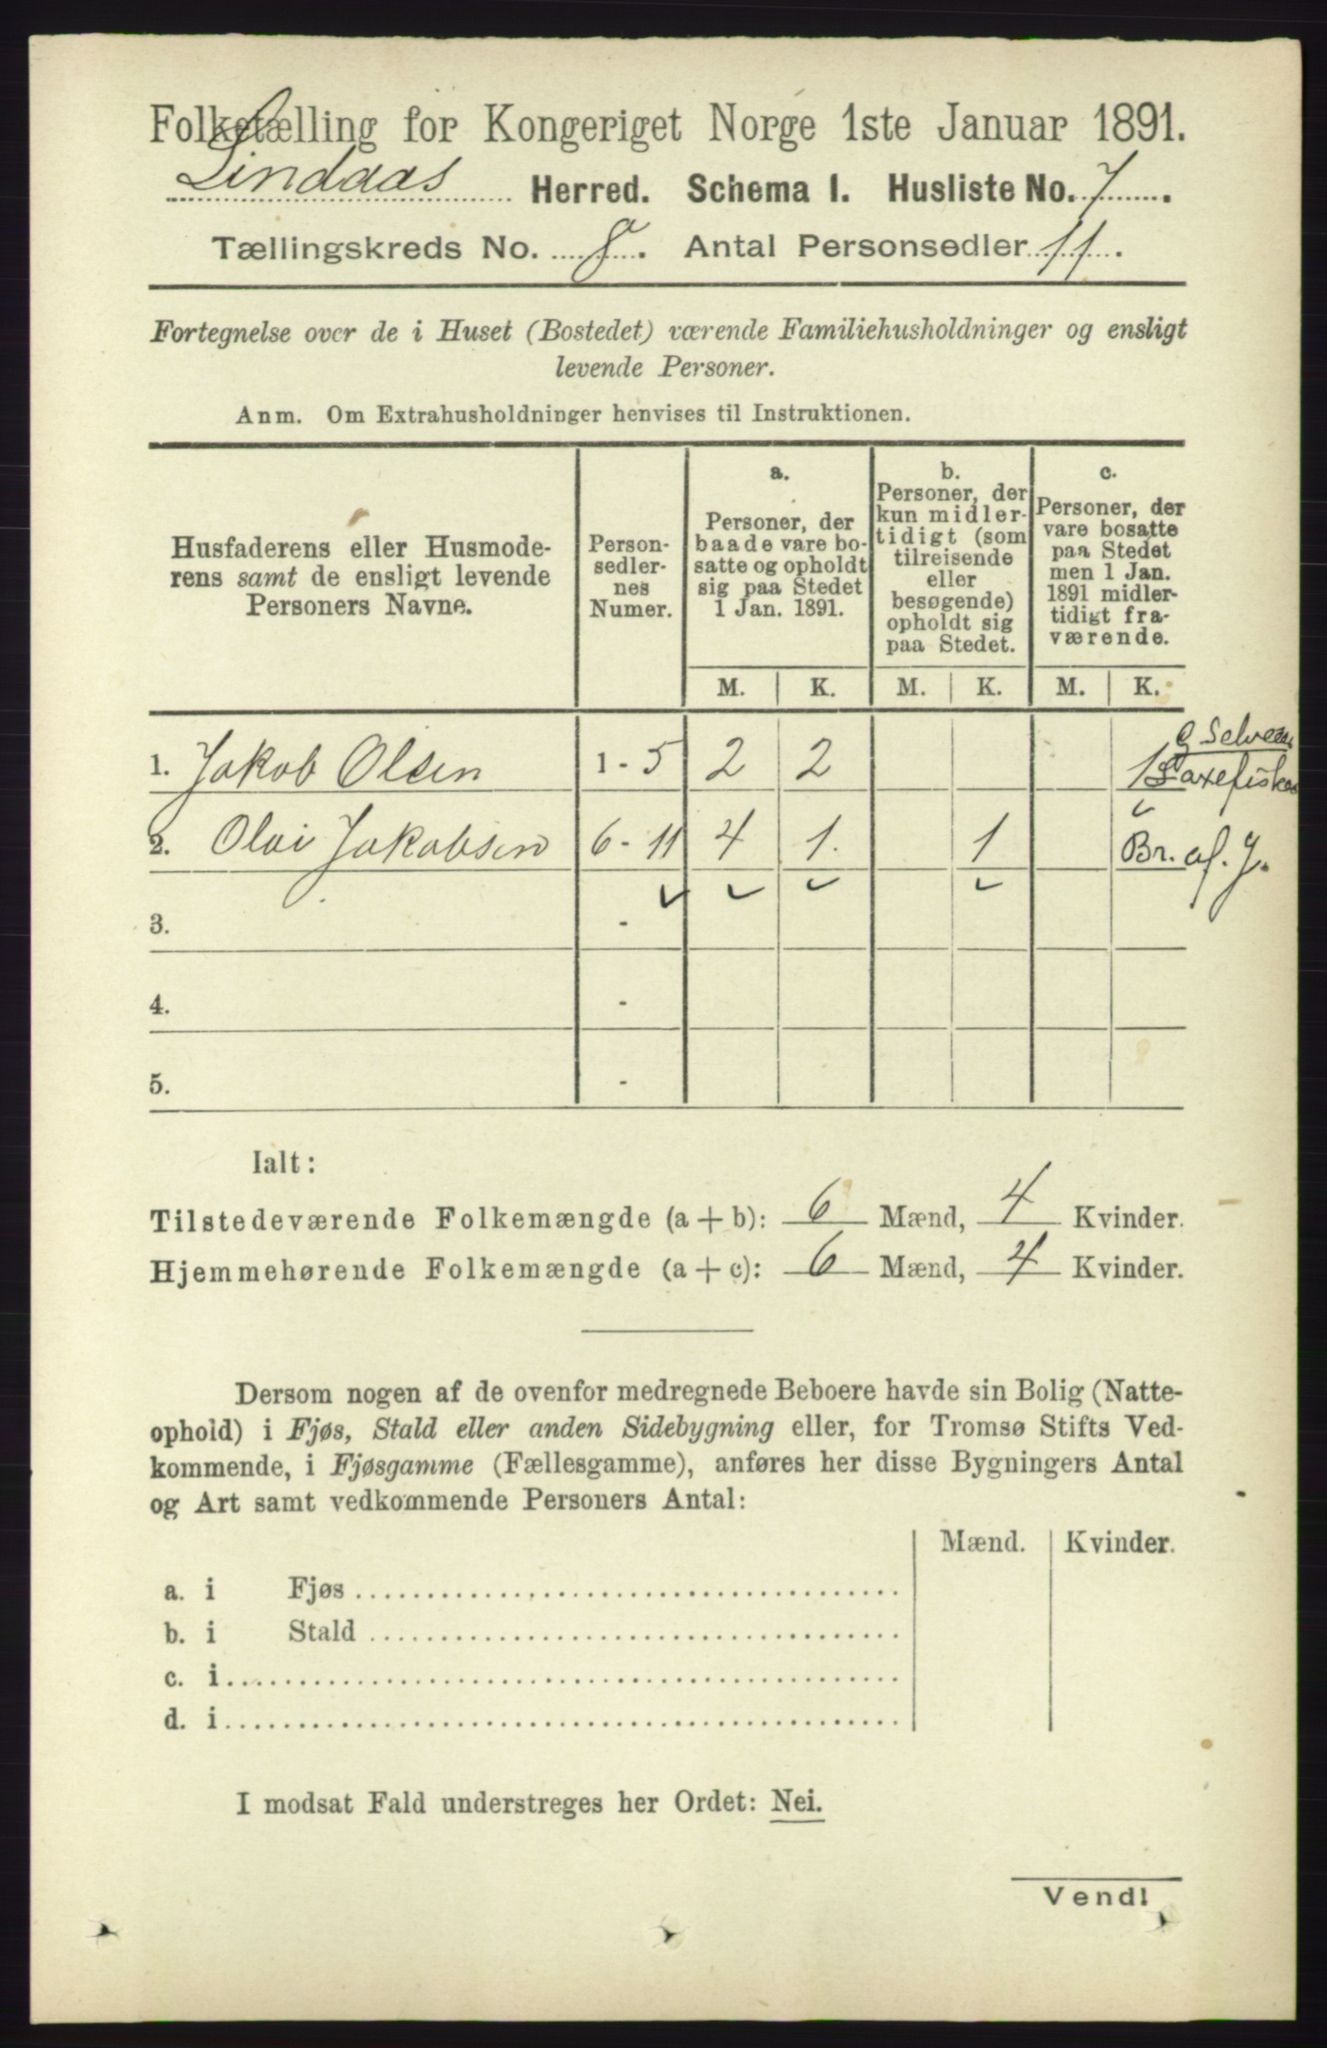 Folketælling for Kongeriget Norge 1ste Januar 1891.
Lindaas Herred. Schema I. Husliste No. 7.
Tællingskreds No. 8. Antal Personsedler 11.
Fortegnelse over de i Huset (Bostedet) værende Familiehusholdninger og ensligt
levende Personer.
Anm. Om Extrahusholdninger henvises til Instruktionen.
Husfaderens eller Husmode-
rens samt de ensligt levende
Personers Navne.
Person-
sedler-
nes
Numer.
a.
Personer, der
baade vare bo-
satte og opholdt
sig paa Stedet
1 Jan. 1891.
b.
Personer, der
kun midler-
tidigt (som
tilreisende
eller
besøgende)
opholdt sig
paa Stedet.
c.
Personer, der
vare bosatte
paa Stedet
men 1 Jan.
1891 midler-
tidigt fra-
værende.
M. K. M. K. M. K.
1. Jakob Olsen 1 - 5 2 2 1
G Selveier
Laxefisker
2. Olai Jakobsen 6 - 11 4 1. 1 Br. af. J.
3. -
4. -
5. -
Ialt:
Tilstedeværende Folkemængde (a + b): 6 Mænd, 4 Kvinder.
Hjemmehørende Folkemængde (a + c): 6 Mænd, 4 Kvinder.
Dersom nogen af de ovenfor medregnede Beboere havde sin Bolig (Natte-
ophold) i Fjøs, Stald eller anden Sidebygning eller, for Tromsø Stifts Ved-
kommende, i Fjøsgamme (Fællesgamme), anføres her disse Bygningers Antal
og Art samt vedkommende Personers Antal:
Mænd. Kvinder.
a. i Fjøs
b. i Stald
c. i
d. i
I modsat Fald understreges her Ordet: Nei.
Vend!